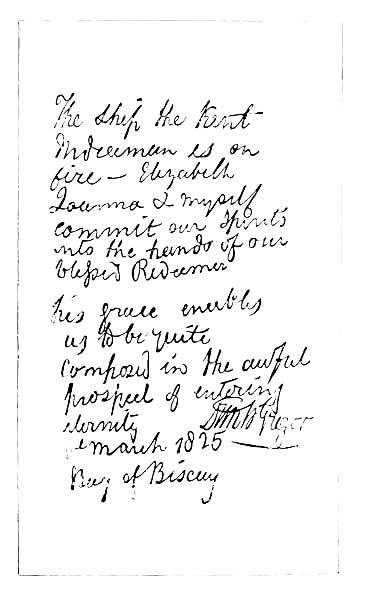 The ship the Kent
Indiaman is on
fire — Elizabeth
Joanna & myself
commit our spirits
into the hands of our
blessed Redeemer
his grace enables
us to be quite
composed in the awful
prospect of entering
eternity DMcGregor
1 March 1825
Bay of Biscay